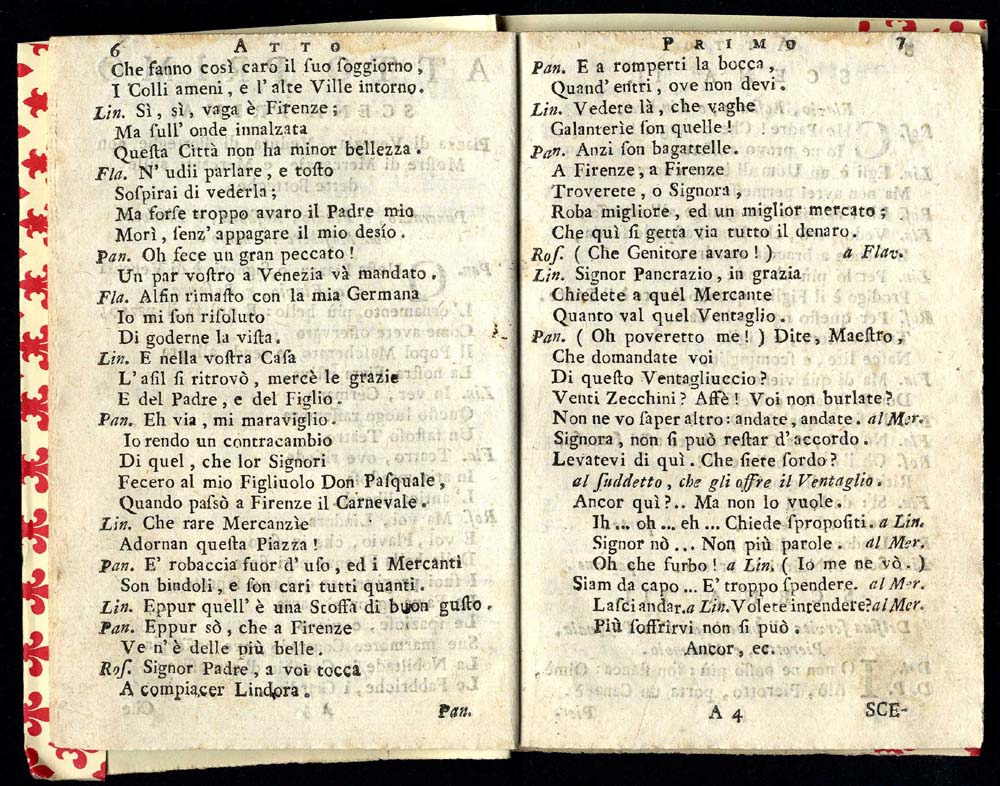 6 ATTO
Che fanno così caro il ſuo ſoggiorno,
I Colli ameni, e l'alte Ville intorno.
Lin. Sì, sì, vaga è Firenze;
Ma ſull' onde innalzata
Queſta Città non ha minor bellezza.
Fla. N' udii parlare, e toſto
Soſpirai di vederla;
Ma forſe troppo avaro il Padre mio
Morì, ſenz' appagare il mio desío.
Pan. Oh fece un gran peccato!
Un par voſtro a Venezia và mandato.
Fla. Alfin rimaſto con la mia Germana
Io mi ſon riſoluto
Di goderne la viſta.
Lin. E nella voſtra Caſa
L'aſil ſi ritrovò, mercè le grazie
E del Padre, e del Figlio.
Pan. Eh via, mi maraviglio.
Io rendo un contracambio
Di quel, che lor Signori
Fecero al mio Figliuolo Don Paſquale,
Quando paſsò a Firenze il Carnevale.
Lin. Che rare Mercanzìe
Adornan queſta Piazza!
Pan. E' robaccia fuor d' uſo, ed i Mercanti
Son bindoli, e ſon cari tutti quanti.
Lin. Eppur quell' è una Stoffa di buon guſto.
Pan. Eppur sò, che a Firenze
Ve n' è delle più belle.
Roſ. Signor Padre, a voi tocca
A compiacer Lindora.
Pan.
PRIMO 7
Pan. E a romperti la bocca,
Quand' entri, ove non devi.
Lin. Vedere là, che vaghe
Galanterìe ſon quelle!
Pan. Anzi ſon bagattelle.
A Firenze, a Firenze
Troverete, o Signora,
Roba migliore, ed un miglior mercato;
Che quì ſi getta via tutto il denaro.
Roſ. (Che Genitore avaro!) a Flav.
Lin. Signor Pancrazio, in grazia
Chiedete a quel Mercante
Quanto val quel Ventaglio.
Pan. (Oh poveretto me!) Dite, Maeſtro,
Che domandate voi
Di queſto Ventagliuccio?
Venti Zecchini? Affè! Voi non burlate?
Non ne vo ſaper altro: andate, andate. al Mer.
Signora, non ſi può reſtar d'accordo.
Levatevi di quì. Che ſiete ſordo?
al ſuddetto, che gli offre il Ventaglio.
Ancor quì?.. Ma non lo vuole.
Ih ... oh ... eh ... Chiede ſpropoſiti. a Lin.
Signor nò ... Non più parole. al Mer.
Oh che furbo! a Lin. (Io me ne vò.)
Siam da capo ... E' troppo ſpendere. al Mer.
Laſci andar. a Lin. Volete intendere? al Mer.
Più ſoffrirvi non ſi può.
Ancor, ec.
A 4 SCE-